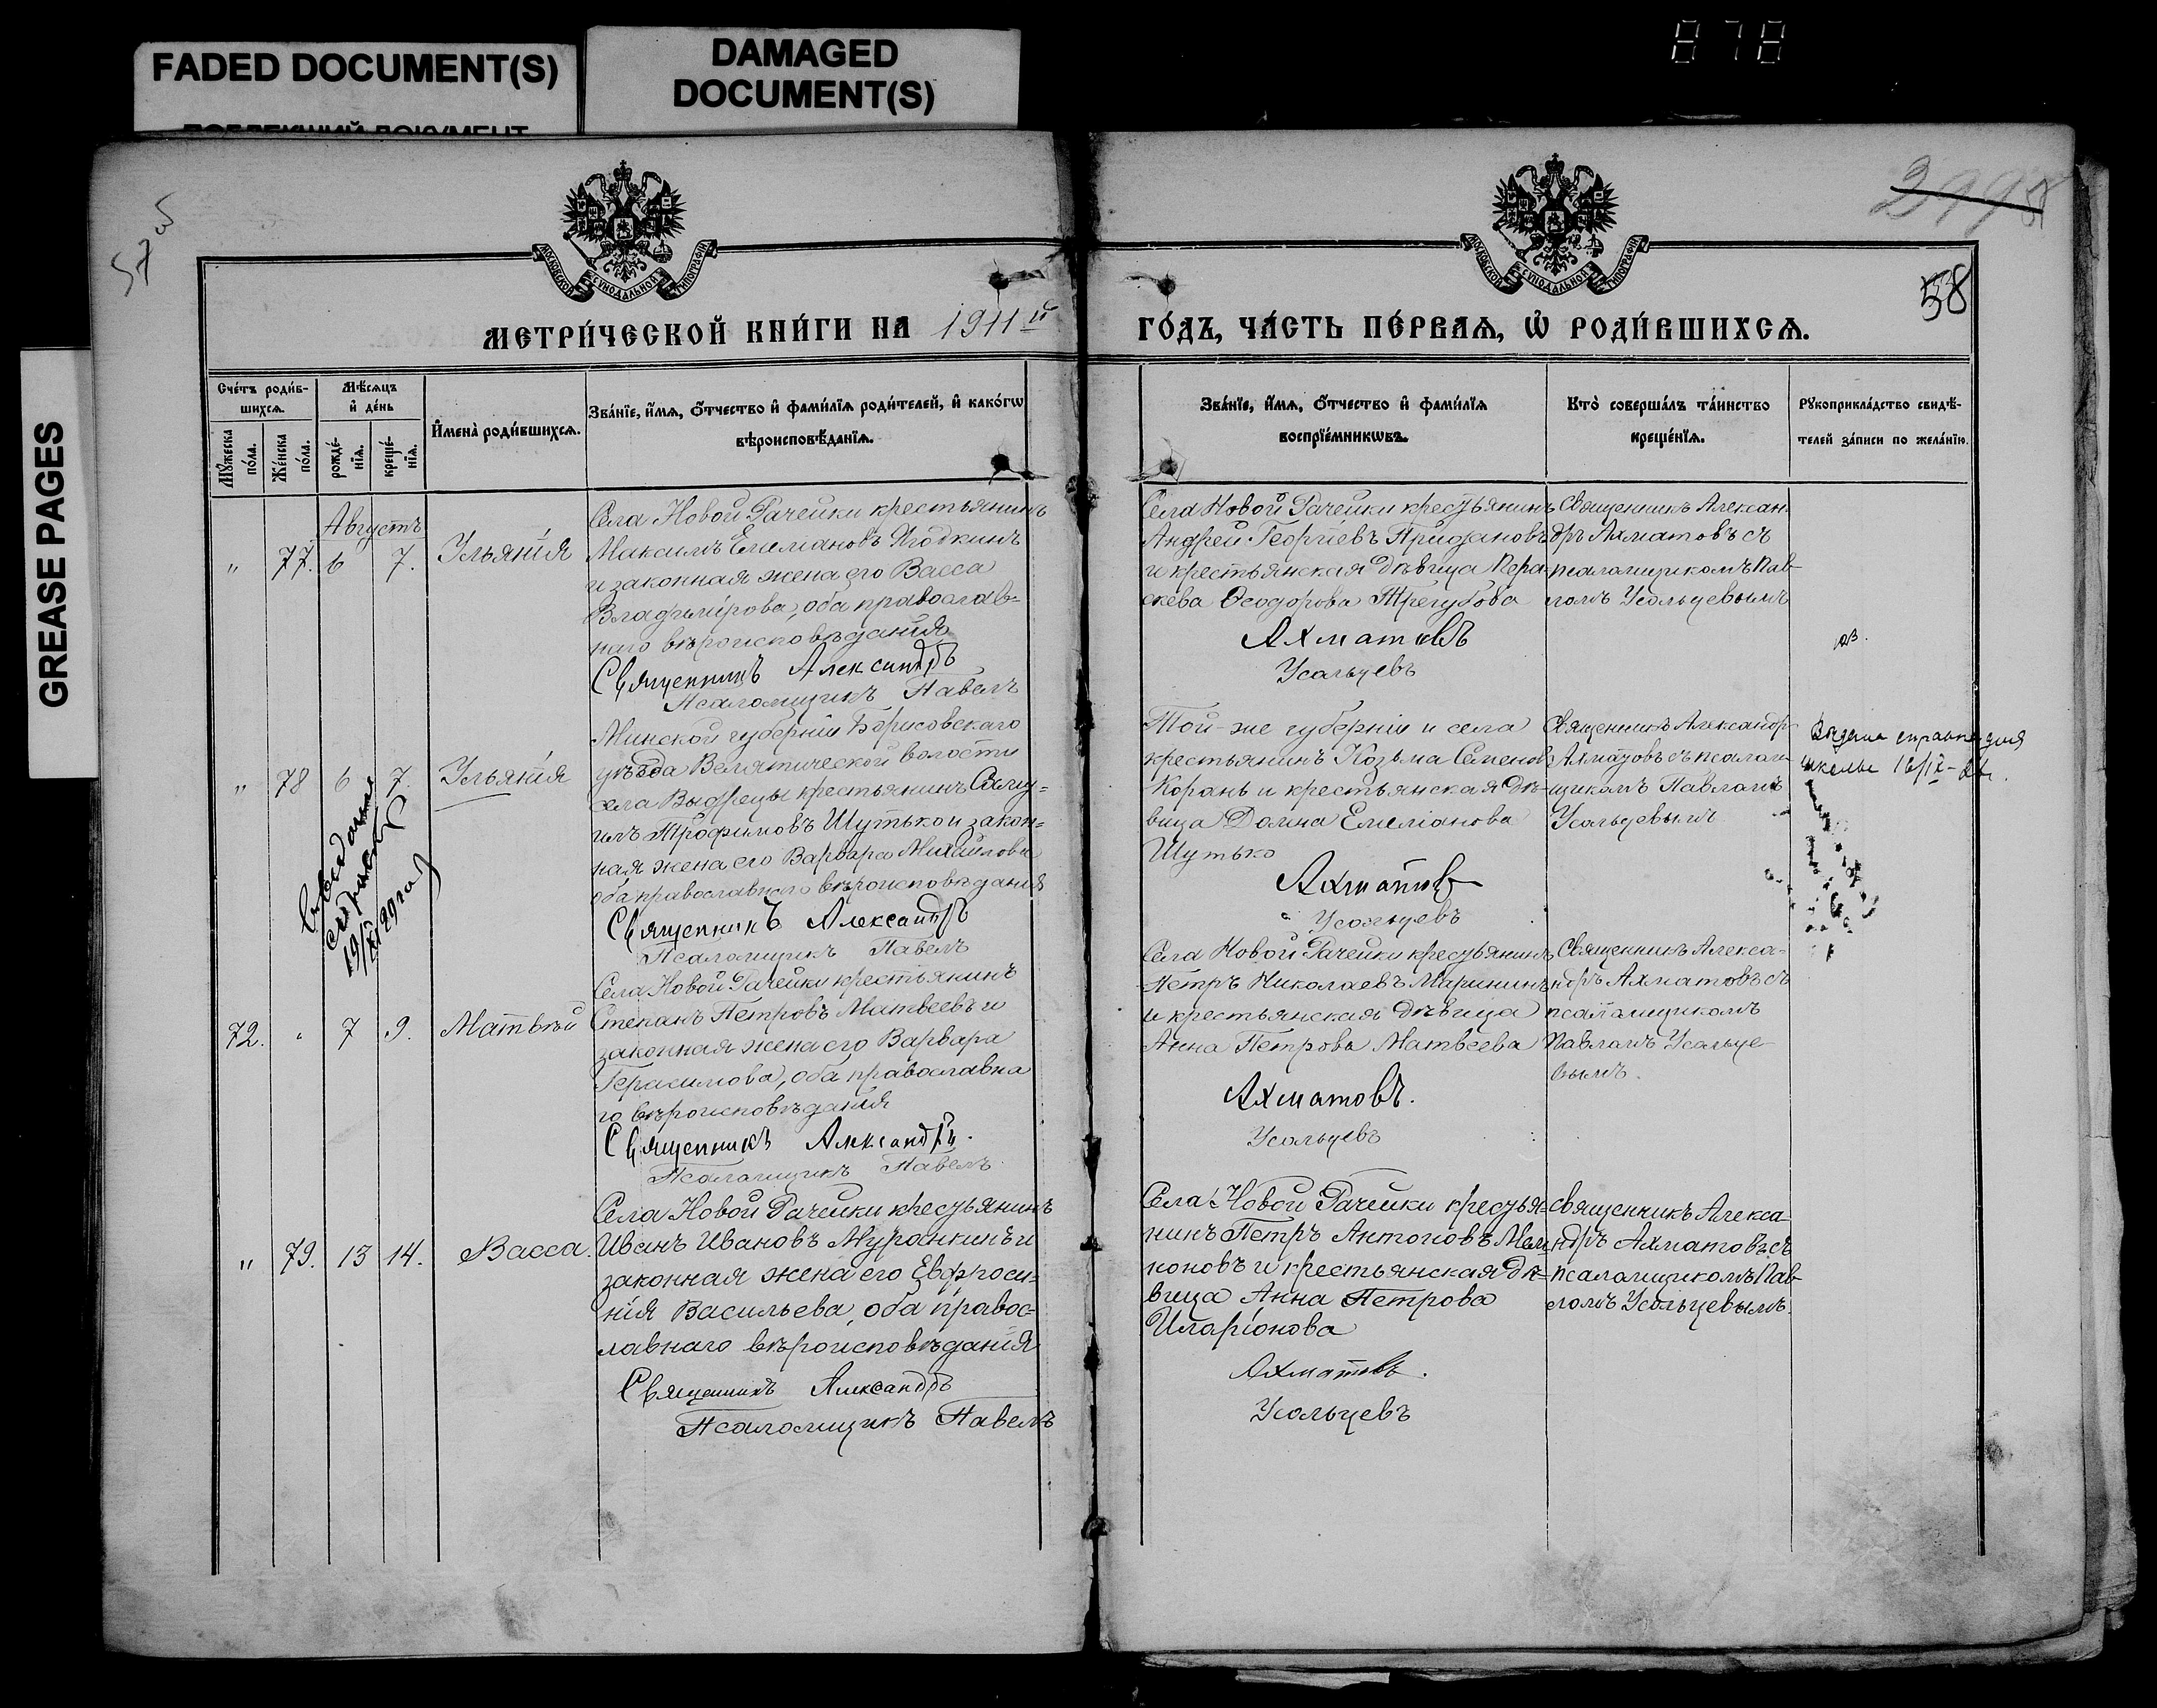 878
FADED DOCUMENT(S)
DAMAGED
DOCUMENT(S)
GREASE PAGES
58
МОСКОВСКОЙ СѴНОДАЛЬНОЙ ТИПОГРАФІИ
МОСКОВСКОЙ СѴНОДАЛЬНОЙ ТИПОГРАФІИ
МЕТРИ́ЧЕСКОЙ КНИ́ГИ НА 1911 й
ГО́ДЪ, ЧА́СТЬ ПЕ́РВАѦ, Ѡ҆ РОДИ́ВШИХСѦ.
Сче́тъ роди́в-
шихсѧ.
Мѣ́сѧцъ
и҆ де́нь
И҆мена̀ роди́вшихсѧ.
Зва́нїе, и҆́мѧ, ѻ҆́тчество и҆ фами́лїѧ роди́телей, и҆ како́гѡ
вѣроисповѣ́данїѧ.
Мꙋ́жеска
по́ла.
Же́нска
по́ла.
рожде́-
нїѧ.
креще́-
нїѧ.
Зва́нїе, и҆́мѧ, ѻ҆́тчество и҆ фами́лїѧ
воспрїе́мникѡвъ.
Кто̀ соверша́лъ та́инство
креще́нїѧ.
Рꙋкоприкла́дство свидѣ́-
телей за́писи по жела́нїю.
Августъ
" 77. 6 7. Ульянія
Села Новой Рачейки крестьянинъ
Максимъ Емеліановъ Ягодкинъ
и законная жена его Васса
Владимірова, оба православ-
наго вѣроисповѣданія
Священникъ Александръ
Псаломщикъ Павелъ
Села Новой Рачейки крестьянинъ
Андрей Георгіевъ
и крестьянская дѣвица Пара-
скева Ѳеодорова Трегубова
Ахматовъ
Усольцевъ
Священникъ Алексан-
дръ Ахматовъ съ
псаломщикомъ Пав-
ломъ Усольцевымъ
" 78 6 7. Ульянія
Минской губерніи Борисовскаго
уѣзда Велятической волости
села Выдрецы крестьянинъ Саму-
илъ Трофимовъ Шутько и закон-
ная жена его Варвара Михайлова
оба православнаго вѣроисповѣданія
Священникъ Александръ
Псаломщикъ Павелъ
Той-же губерніи и села
крестьянинъ Козьма Семеновъ
Корань и крестьянская дѣ-
вица Домна Емеліанова
Шутько
Ахматовъ
Усольцевъ
Священникъ Александръ
Ахматовъ съ псалом-
щикомъ Павломъ
Усольцевымъ
Выдана справка для
школы
72. " 7 9. Матвѣй
Села Новой Рачейки крестьянинъ
Степанъ Петровъ Матвеевъ и
законная жена его Варвара
Герасимова, оба православна
го вѣроисповѣданія
Священникъ Александръ.
Псаломщикъ Павелъ.
Села Новой Рачейки крестьянинъ
Петръ Николаевъ Марининъ
и крестьянская дѣвица
Анна Петрова Матвеева
Ахматовъ.
Усольцевъ
Священникъ Алекса-
ндръ Ахматовъ съ
псаломщикомъ
Павломъ Усольце-
вымъ.
" 79. 13 14. Васса.
Села Новой Рачейки крестьянинъ
Иванъ Ивановъ Муранкинъ и
законная жена его Евфроси-
нія Васильева, оба правос-
лавнаго вѣроисповѣданія
Священникъ Александръ
Псаломщикъ Павелъ
Села Новой Рачейки крестья-
нинъ Петръ Антоновъ Мам-
коновъ и крестьянская дѣ-
вица Анна Петрова
Иларіонова
Ахматовъ.
Усольцевъ
Священникъ Алекса-
ндръ Ахматовъ съ
псаломщикомъ Пав-
ломъ Усольцевымъ.